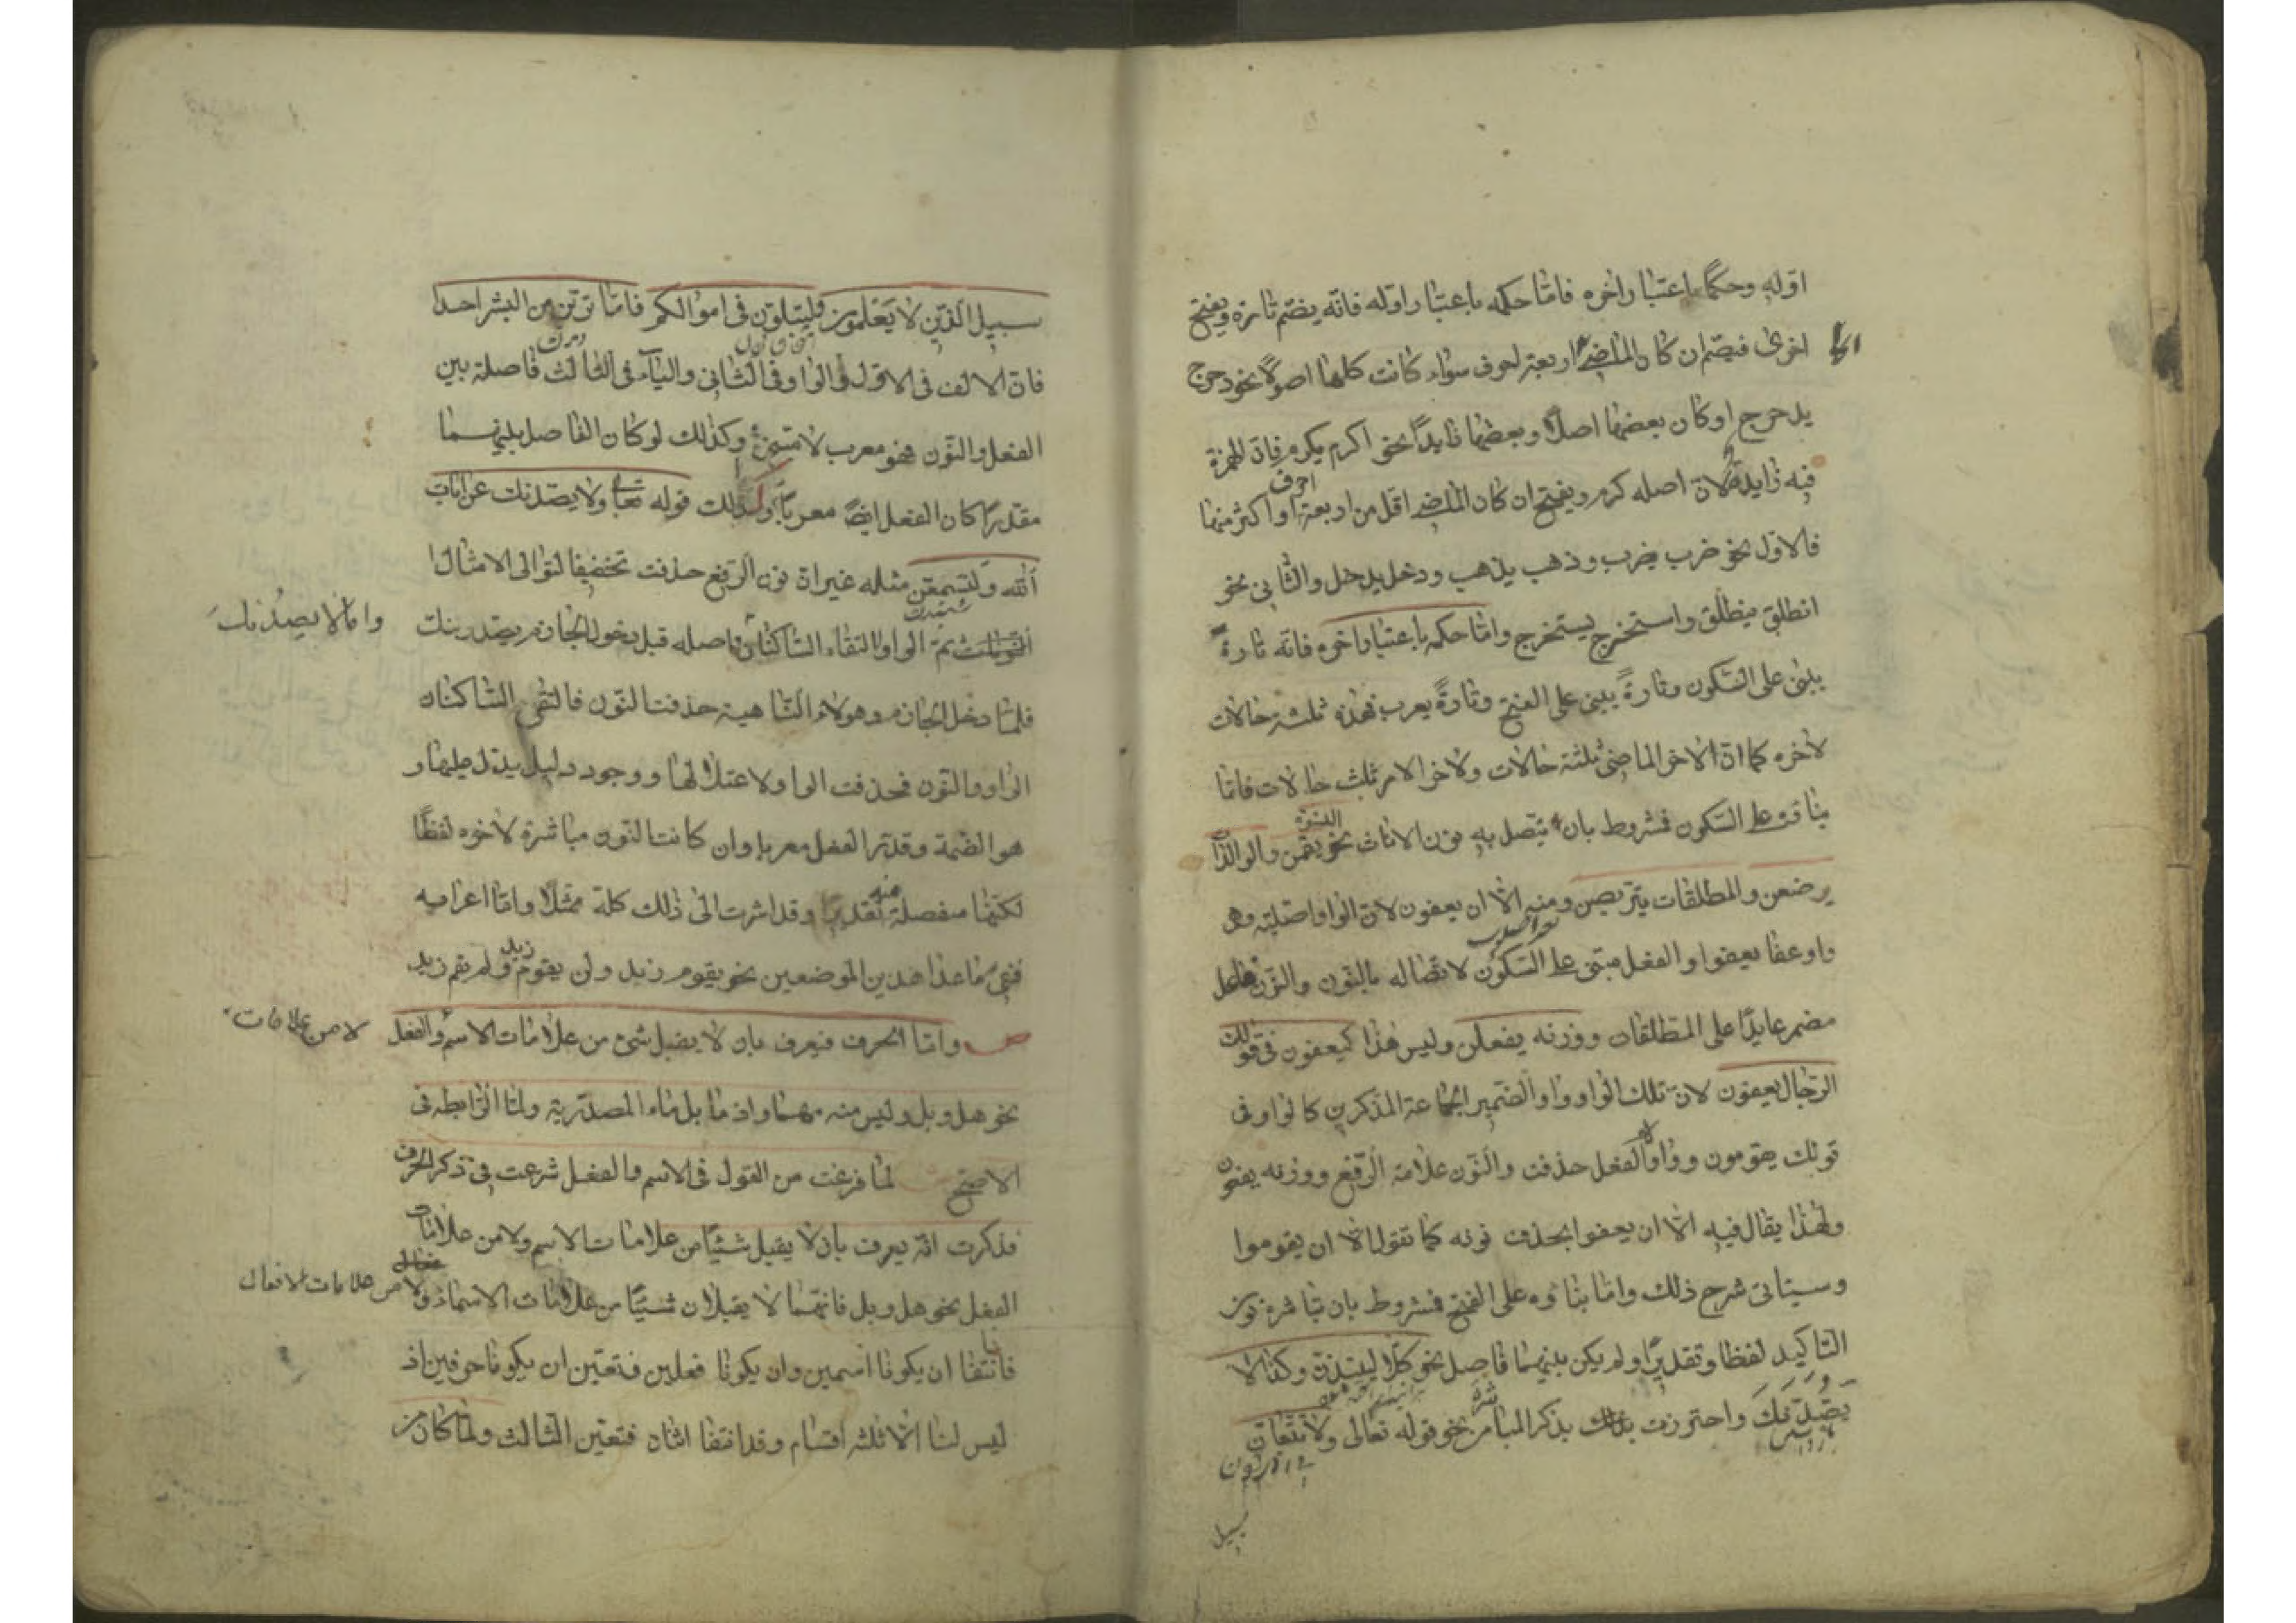 اوّله وحكما باعتبار اخره فامّا حكمه باعتبار اوّله فانّه يضم تارة ويفتح
اخرى فيضم ان كان الماضى اربعة احرف سواء كانت كلها اصولا نحو دحرج
يدحرج او كان بعضها اصلا وبعضها زايدًا نحو اكرم يكرم فانّ الهمزة
فيه زايدة لانّ اصله كرم ويفتح ان كان الماضى اقل من اربعة احرف او اكثر منها
فالاوّل نحو ضرب يضرب وذهب يذهب ودخل يدخل والثانى نحو
انطلق ينطلق واستخرج يستخرج وامّا حكمه باعتبار اخره فانّه تارة
يبنى على السّكون وتارةً يبنى على الفتح وتارةً يعرب فهذه ثلثة حالات
لاخره كما انّ لاخر الماضى ثلثة حالات ولاخر الامر ثلث حالات فامّا
بناؤه على السّكون فمشروط بان يتّصل به نون الاناث نحو يقمن والوالدات
يرضعن والمطلقات يتربصن ومنه الّا ان يعفون لانّ الواو اصليّة وهى
واو عفا يعفو والفعل مبنى على السّكون لاتّصاله بالنّون والنّون فاعل
مضمر عايدًا على المطلقات ووزنه يفعلن وليس هذا كيعفون فى قولك
الرّجال يعفون لانّ تلك الواو واو الضّمير الجماعة المذكرين كالواو فى
قولك يقومون وواو الفعل حذفت والنّون علامة الرّفع ووزنه يعفون
ولهذا يقال فيه الّا ان يعفوا بحذف نونه كما تقول الّا ان يقوموا
وسيئاتى شرح ذلك وامّا بناؤه على الفتح فمشروط بان تباشره نون
التّاكيد لفظا وتقديرًا ولم يكن بينهما فاصل نحو كلّا لينبذنّ وكذا لا
يصدّنك واحترزت بذلك بذكر المباشرة من نحو قوله تعالى ولا تتّبعانّ
سبيل
سبيل الّذين لا يعلمون ولتبلونّ فى اموالكم فامّا ترينّ من البشر احدا
فانّ الالف فى الاوّل والواو فى الثّانى والياء فى الثّالث فاصلة بين
الفعل والنّون فهو معرب لا مبنى وكذلك لو كان الفاصل بينهما
مقدّرًا كان الفعل ايضًا معربًا وكذلك قوله تعالى ولا يصدّنك عن ايات
اللّه ولتسمعن مثله غير انّ نون الرّفع حذفت تخفيفا لتوالى الامثال
ثمّ الواو لالتقاء السّاكنان واصله قبل دخول الجازم يصدّوننك
وامّا لا يصدّنك
فلمّا دخل الجازم وهو لاء النّاهية حذفت النّون فالتقى السّاكنان
الواو والنّون فحذفت الواو لاعتلالها ووجود دليل يدل عليها و
هو الضّمة وقدّر الفعل معربا وان كانت النّون مباشرة لاخره لفظًا
لكنّها منفصلة منه تقديرًا وقد اشرت الى ذلك كلّه ممثلًا وامّا اعرابه
ففى ما عدا هذين الموضعين نحو يقوم زيد ولن يقوم زيد ولم يقم زيد
ص وامّا الحرف فيعرف بان لا يقبل شئ من علامات الاسم والفعل
لا من علامات
نحو هل وبل وليس منه مهما واذ ما بل ماء المصدّرية ولمّا الرّابطة فى
الاصّح لمّا فرغت من القول فى الاسم والفعل شرعت فى ذكر الحرف
فذكرت انّه يعرف بان لا يقبل شئيًا من علامات الاسم ولا من علامات
الفعل نحو هل وبل فانّهما لا يقبلان شئيًا من علامات الاسماء
ولا من علامات الافعال
فانتفا ان يكونا اسمين وان يكونا فعلين فتعيّن ان يكونا حرفين اذ
ليس لنا الّا ثلثة اقسام وقد انتفا اثنان فتعيّن الثّالث ولمّا كان من